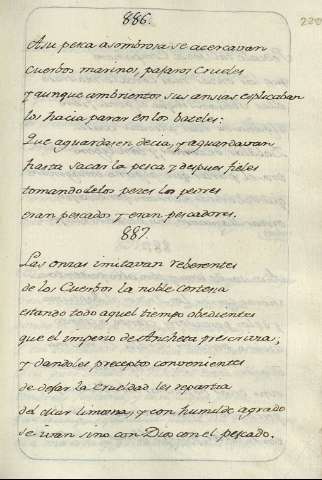 886.
A su pesca asombrosa se acercavan
cuerbos marinos, pajaros crueles
y aunque ambrientos sus ansias esplicaban
los hacia parar en los bateles:
Que aguardasen decia, y aguardavan
hasta sacar la pesca y despues fieles
tomandole los pezes los peores
eran pescados y eran pescadores.
887
Las onzas imitavan reberentes
de los Cuerbos la noble cortesia
estando todo aquel tiempo obedientes
que el imperio de Ancheta prescrivia;
y dandoles preceptos convenientes
de dejar la crueldad les repartia
del mar limosna, y con humilde agrado
se ivan sino con Dios con el pescado.